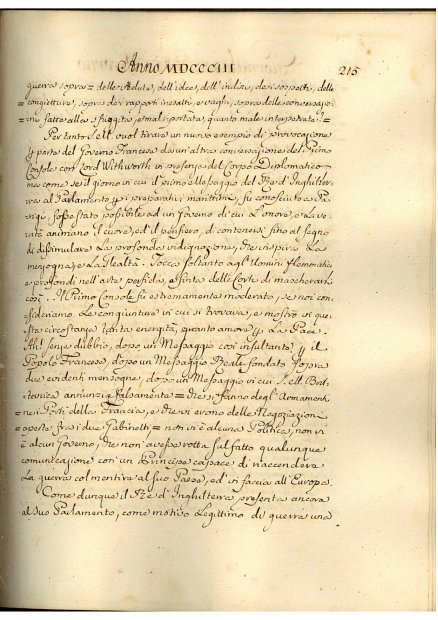 Anno MDCCCIII 215
guerra sopra = delle vedute, dell'idee, dell'indizi, dei sospetti, delle
= congietture, sopra dei rapporti inesatti, e vaghi, sopra delle conversazio=
= ni fatte alla sfuggita, e mal riportate, quanto male interpretate! =
Per tanto S. M. vuol tirare un nuovo esempio di provocazione
parte del Governo Francese da un'altra conversazione del Primo
Console con Lord Withworth in presenza del Corpo Diplomatico
ma come se il giorno in cui il primo Messaggio del Re d'Inghilter=
ra al Parlamento, i preparativi marittimi, fù conosciuto a Pa=
rigi, fosse stato possibile ad un Governo di cui l'onore, e la ve=
rità animano il cuore, ed il pensiero, di contenersi sino al segno
di dissimulare la profonda indignazione, che inspira la
menzogna, e la slealtà. Tocca soltanto agl'Uomini flemmatici
e profondi nell'arte perfida, e finta delle Corti di mascherarsi
così. Il Primo Console fù estremamente moderato, se noi con=
sideriamo le congiunture in cui si trovava, e mostrò in que=
sta circostanza tanta energia, quanto amore la Pace.
Ah! senza dubbio, dopo un Messaggio così insultante il
Popolo Francese, dopo un Messaggio Reale fondato sopra
due evidenti menzogne, dopo un Messaggio in cui S. M. Brit=
tanica annunzia falsamente = che si fanno degl'Armamenti
nei Porti della Francia, e che vi erono delle Negoziazioni
aperte fra i due Gabinetti = non vi è alcuna Politica, non vi
è alcun Governo, che non avesse rotta sul fatto qualunque
comunicazione con un Principe capace di riaccendere
la guerra col mentire al suo Paese, ed in faccia all'Europa.
Come dunque il Re d'Inghilterra presenta ancora
al suo Parlamento, come motivo legittimo di guerra una